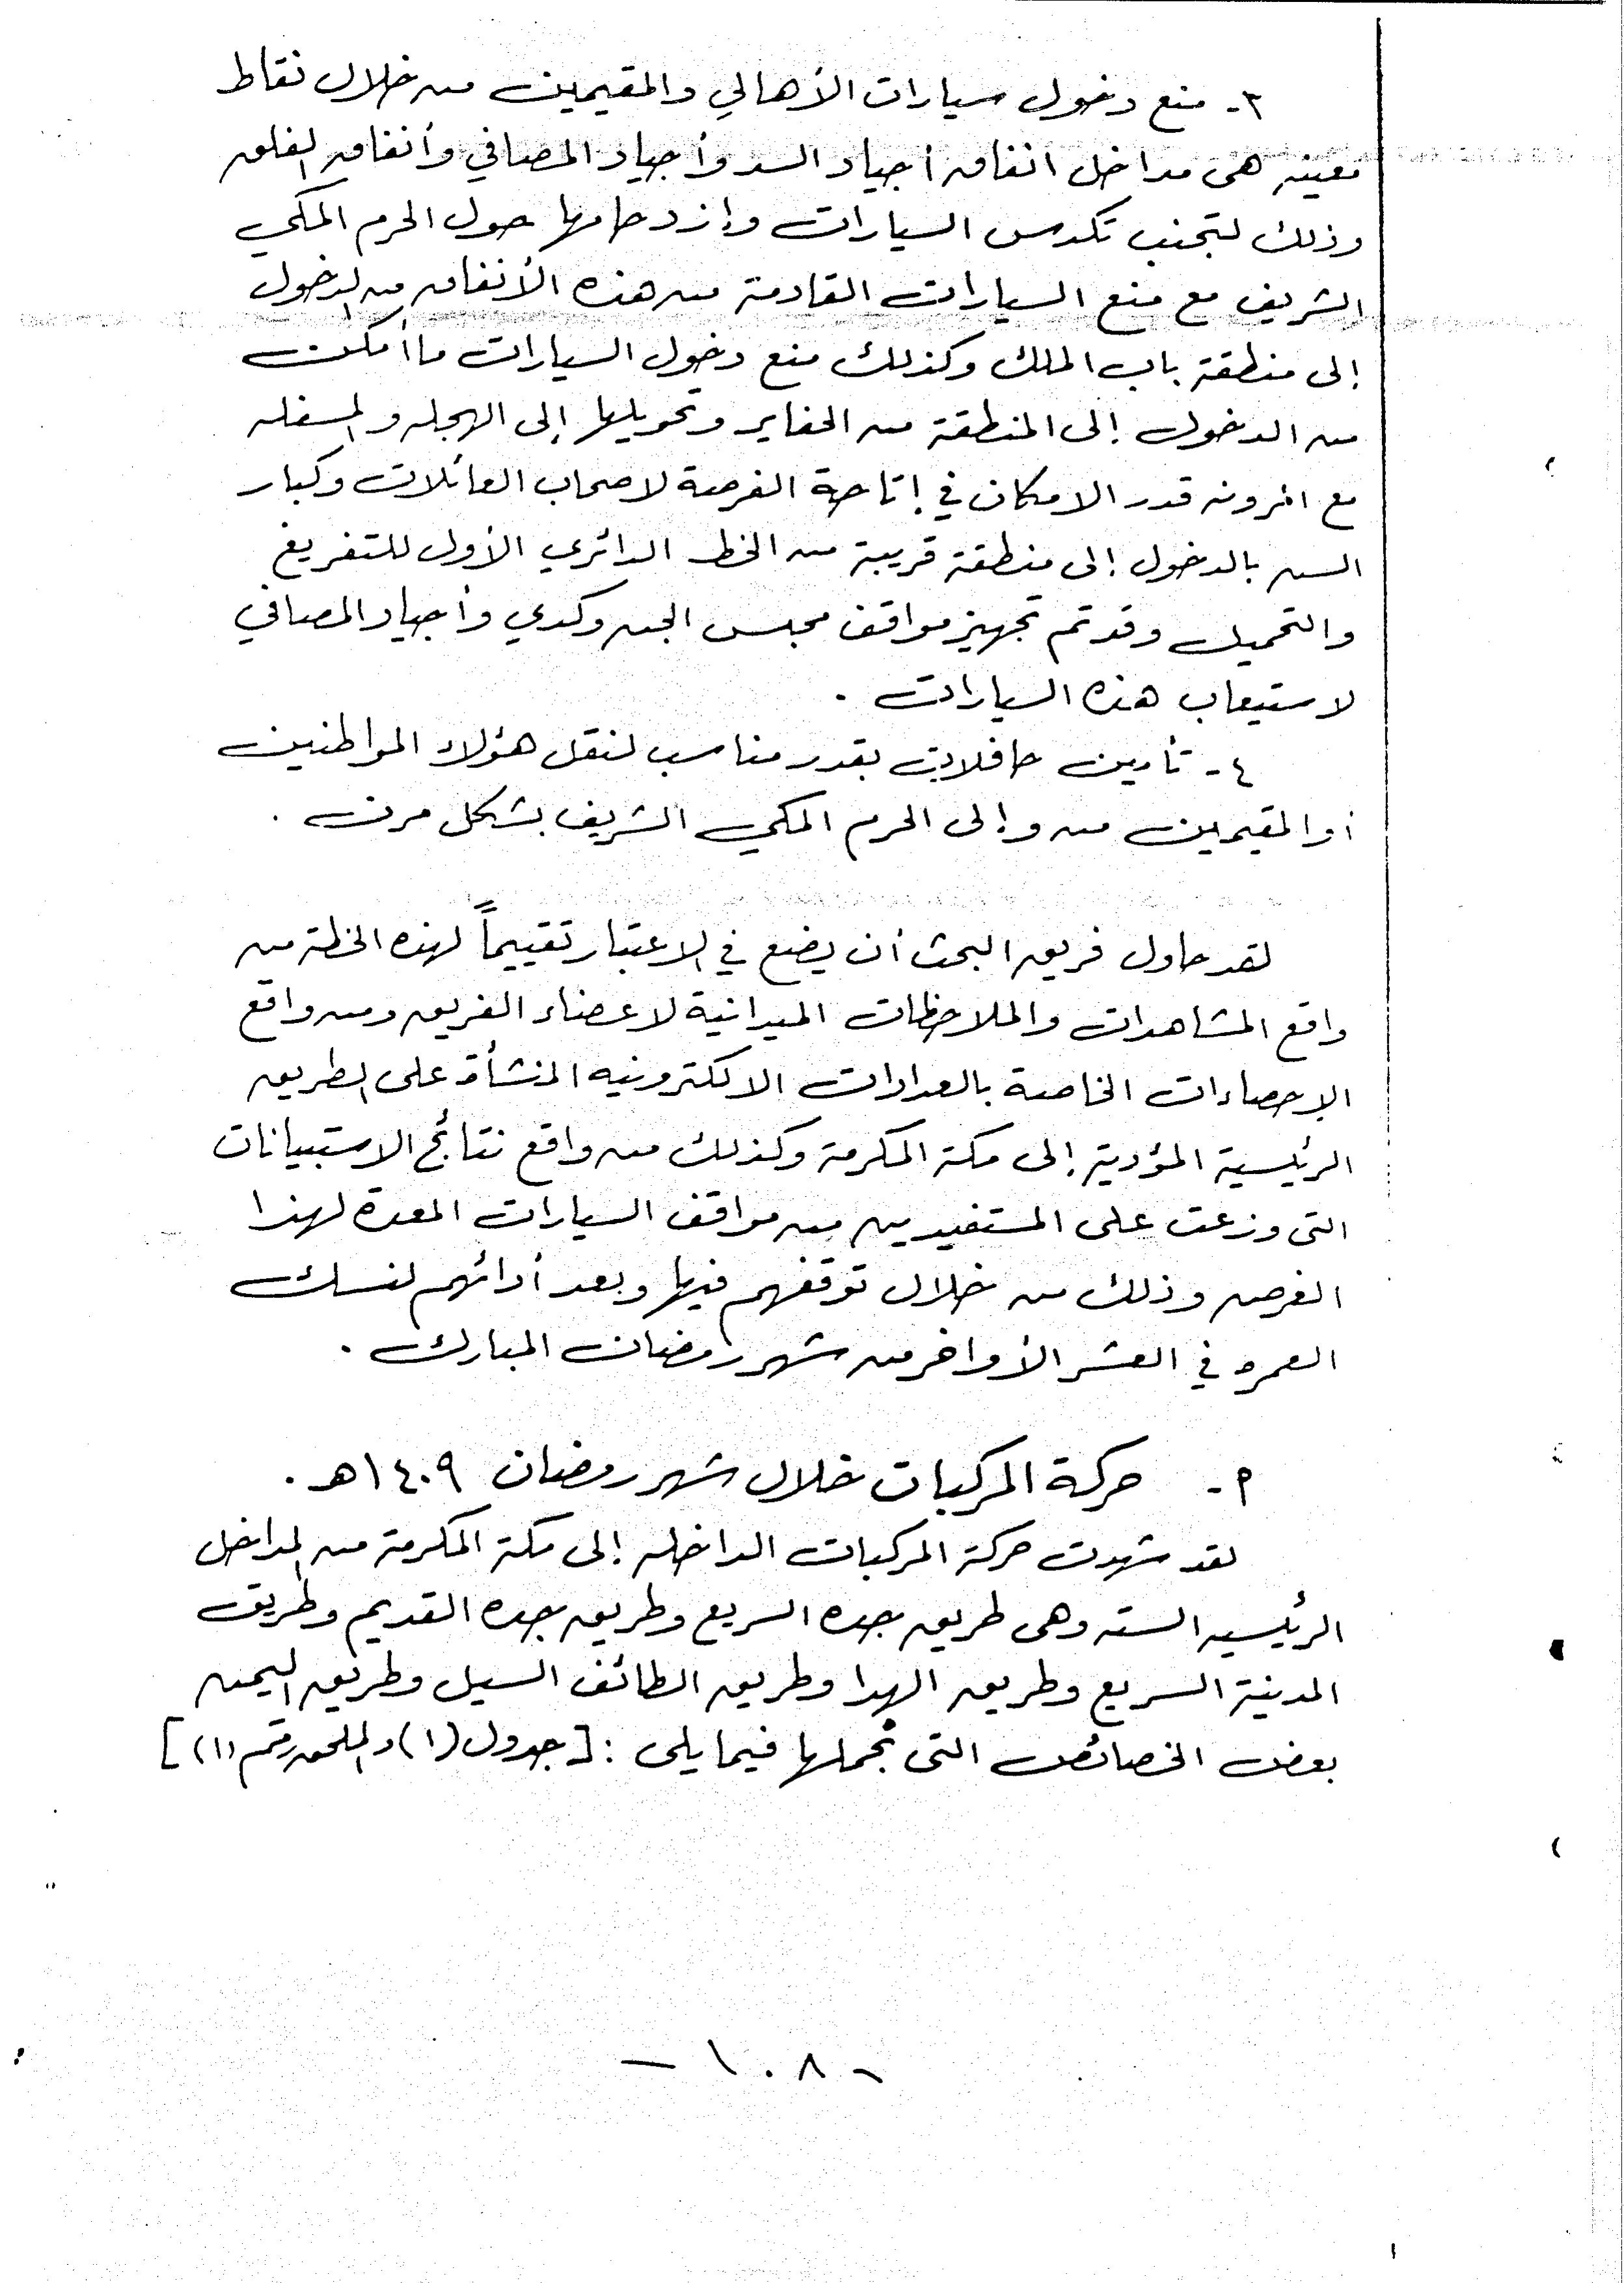 ٣- منع دخول سيارات الأهالي والمقيمين من خلال نقاط
معينه هى مداخل انفاق أجياد السد وأجياد المصافي وأنفاق الفلق
وذلك لتجنب تكدس السيارات وازدحامها حول الحرم المكي
الشريف مع منع السيارات القادمة من هذه الأنفاق من الدخول
إلى منطقة باب الملك وكذلك منع دخول السيارات ما أمكن
من الدخول إلى المنطقة من الحفاير وتحويلها إلى الهجله والمسفله
مع المرونه قدر الامكان في إتاحة الفرصة لاصحاب العائلات وكبار
السن بالدخول إلى منطقة قريبة من الخط الدائري الأول للتفريغ
والتحميل وقد تم تجهيز مواقف مجلس الجن وكدي وأجياد المصافي
لاستيعاب هذه السيارات .
٤- تأمين حافلات بقدر مناسب لنقل هؤلاء المواطنين
أو المقيمين من وإلى الحرم المكي الشريف بشكل مرن .
لقد حاول فريق البحث أن يضع في الاعتبار تقييماً لهذه الخطة من
واقع المشاهدات والملاحظات الميدانية لاعضاء الفريق ومن واقع
الإحصاءات الخاصة بالعدادات الالكترونيه المنشأة على الطريق
الرئيسية المؤدية إلى مكة المكرمة وكذلك من واقع نتائج الاستبيانات
التى وزعت على المستفيدين من مواقف السيارات المعدة لهذا
الغرض وذلك من خلال توقفهم فيها وبعد أدائهم لنسك
العمرة في العشر الأواخر من شهر رمضان المبارك .
٢- حركة المركبات خلال شهر رمضان ١٤٠٩هـ .
لقد شهدت حركة المركبات الداخله إلى مكة المكرمة من المداخل
الرئيسيه السته وهى طريق جده السريع وطريق جده القديم وطريق
المدينة السريع وطريق الهدا وطريق الطائف السيل وطريق اليمن
بعض الخصائص التى نجملها فيما يلى : [جدول (١) والملحق رقم (١)]
- ١٠٨ -